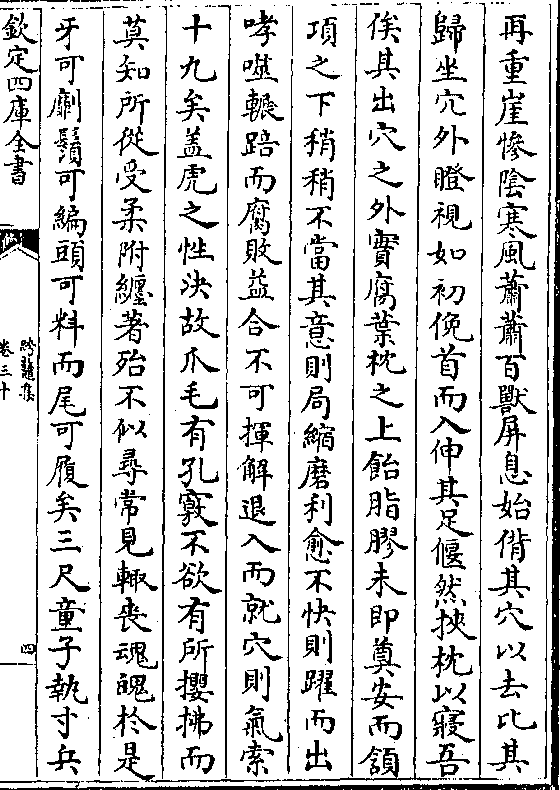 再重崖慘陰寒風蕭蕭百獸屏息始偝其穴以去比其
歸坐穴外瞪視如初俛首而入伸其足偃然挾枕以寢吾
俟其出穴之外實腐葉枕之上飴脂膠未即奠安而頷
項之下稍稍不當其意則局縮磨利愈不快則躍而出
哮噬輾踣而腐敗益合不可揮解退入而就穴則氣索
十九矣盖虎之性決故爪毛有孔竅不欲有所攖拂而
莫知所從受柔附纏著殆不似尋常見輒喪魂魄於是
牙可劘鬚可編頭可料而尾可履矣三尺童子執寸兵
欽定四庫全書
卷三十
四